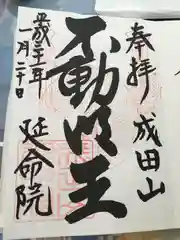 奉拝
成田山
不動明王
平成三十一年
一月二十日
延命院